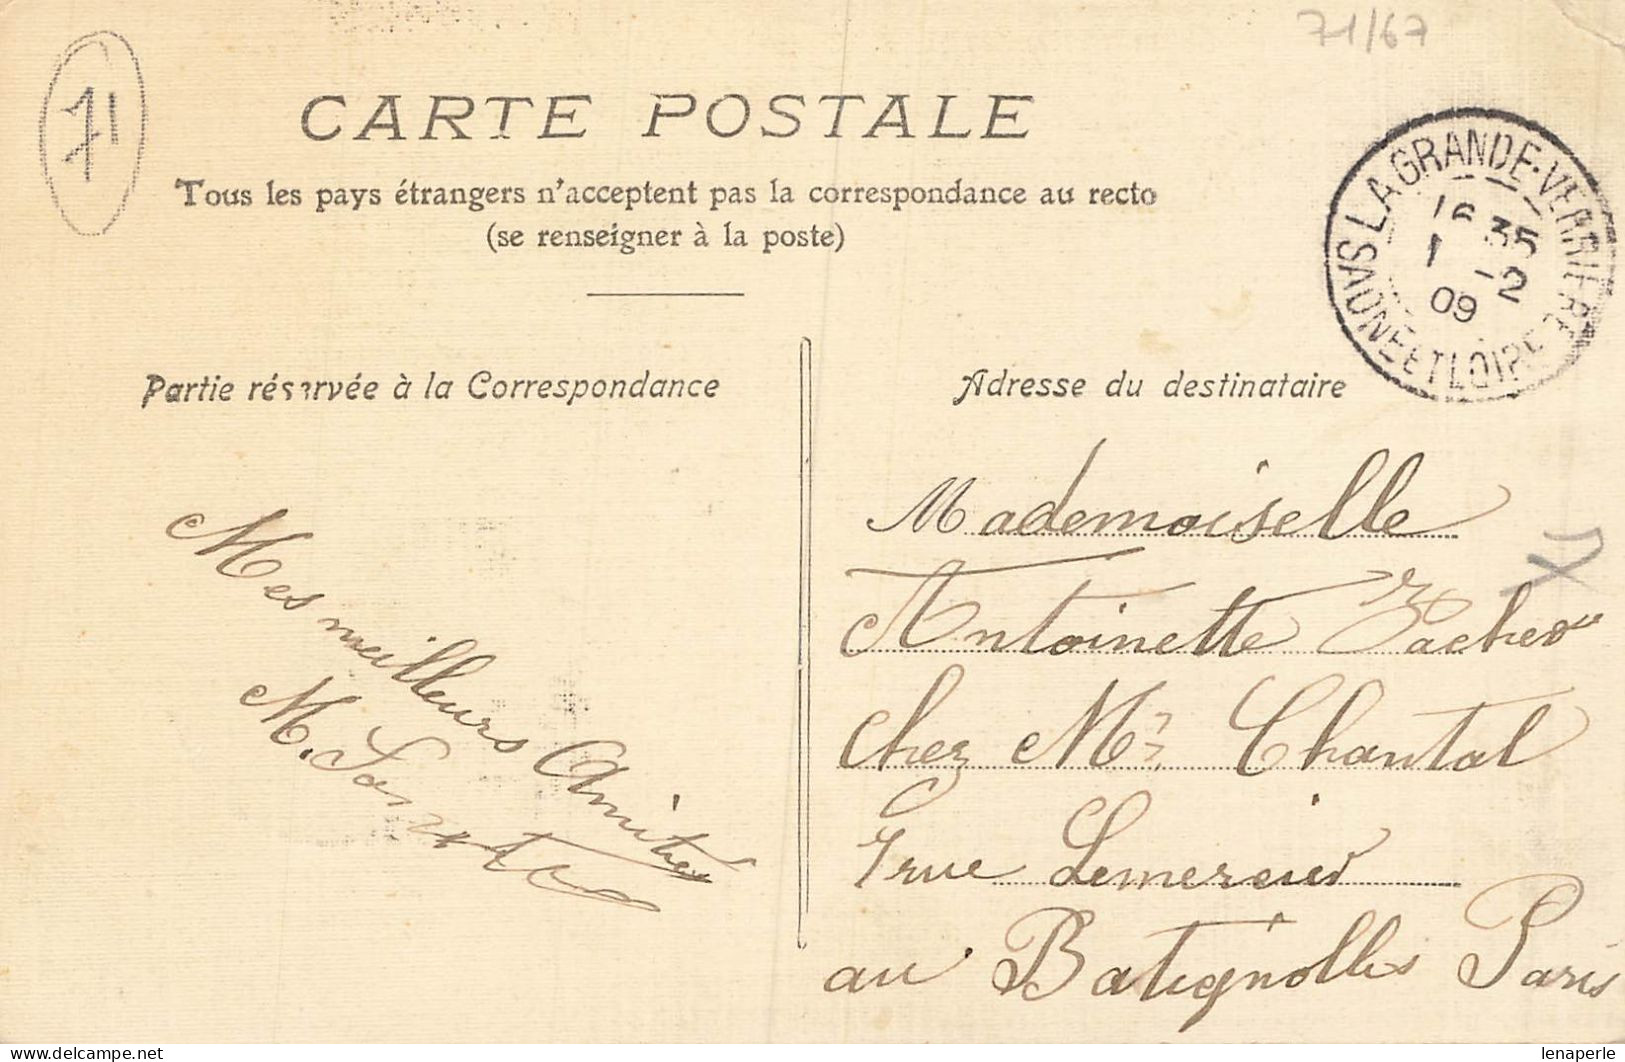 71/67
71
CARTE POSTALE
Tous les pays étrangers n'acceptent pas la correspondance au recto
(se renseigner à la poste)
LA GRANDE-VERRERIE
16 35
1 -2
09
SAONE ET LOIRE
Partie réservée à la Correspondance
Adresse du destinataire
Mes meilleurs Amitiés
M.
Mademoiselle
Antoinette
chez Mr Chantal
7 rue Lemercier
au Batignolles Paris
lenaperle